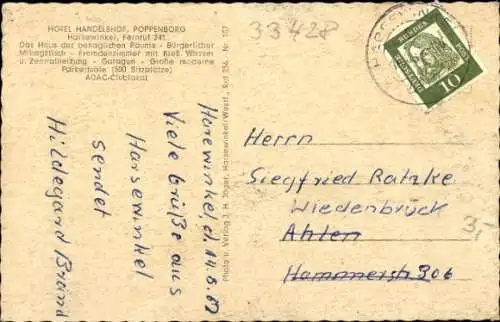 HOTEL HANDELSHOF, POPPENBORG
Harsewinkel, Fernruf 241
Das Haus der behaglichen Räume - Bürgerlicher
Mittagstisch - Fremdenzimmer mit fließ. Wasser
u. Zentralheizung - Garagen - Große moderne
Parkettsäle (500 Sitzplätze)
ADAC-Clublokal
33428
HARSEWINKEL
DEUTSCHE
BUNDESPOST
10
Harsewinkel, d. 14.8.62
Viele Grüße aus
Harsewinkel
sendet
Hildegard Brand
Photo u. Verlag J. H. Jöger, Harsewinkel/Westf., Ruf 256 Nr. 107
Herrn
Siegfried Ratzke
Wiedenbrück
Ahlen
Hammerstr 306
3,-